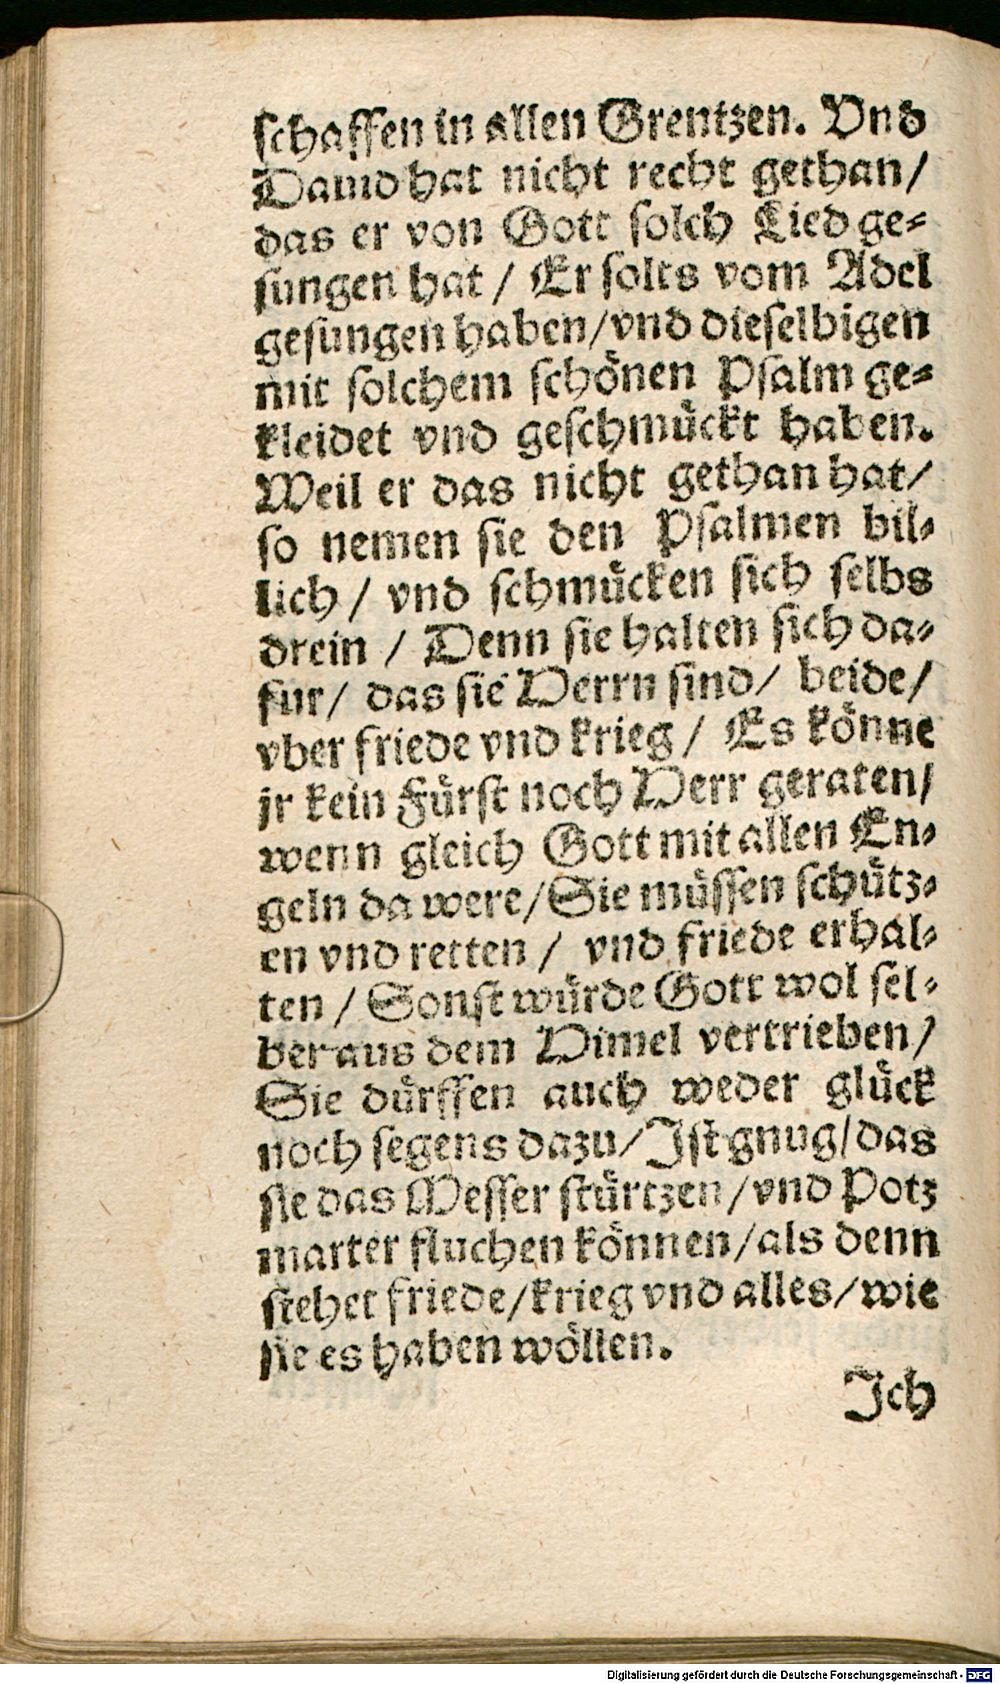 schaffen in allen Grentzen. Vnd
Dauid hat nicht recht gethan/
das er von Gott solch Lied ge⸗
sungen hat / Er solts vom Adel
gesungen haben/vnd dieselbigen
mit solchem schönen Psalm ge⸗
kleidet vnd geschmückt haben.
Weil er das nicht gethan hat/
so nemen sie den Psalmen bil⸗
lich / vnd schmücken sich selbs
drein / Denn sie halten sich da⸗
fur/ das sie Herrn sind/ beide/
vber friede vnd krieg / Es könne
jr kein Fürst noch Herr geraten/
wenn gleich Gott mit allen En⸗
geln da were/Sie müssen schütz⸗
en vnd retten / vnd friede erhal⸗
ten / Sonst würde Gott wol sel⸗
ber aus dem Himel vertrieben/
Sie dürffen auch weder glück
noch segens dazu/Ist gnug/das
sie das Messer stürtzen/vnd Potz
marter fluchen können/als denn
stehet friede/krieg vnd alles/wie
sie es haben wöllen.
Ich
Digitalisierung gefördert durch die Deutsche Forschungsgemeinschaft - DFG